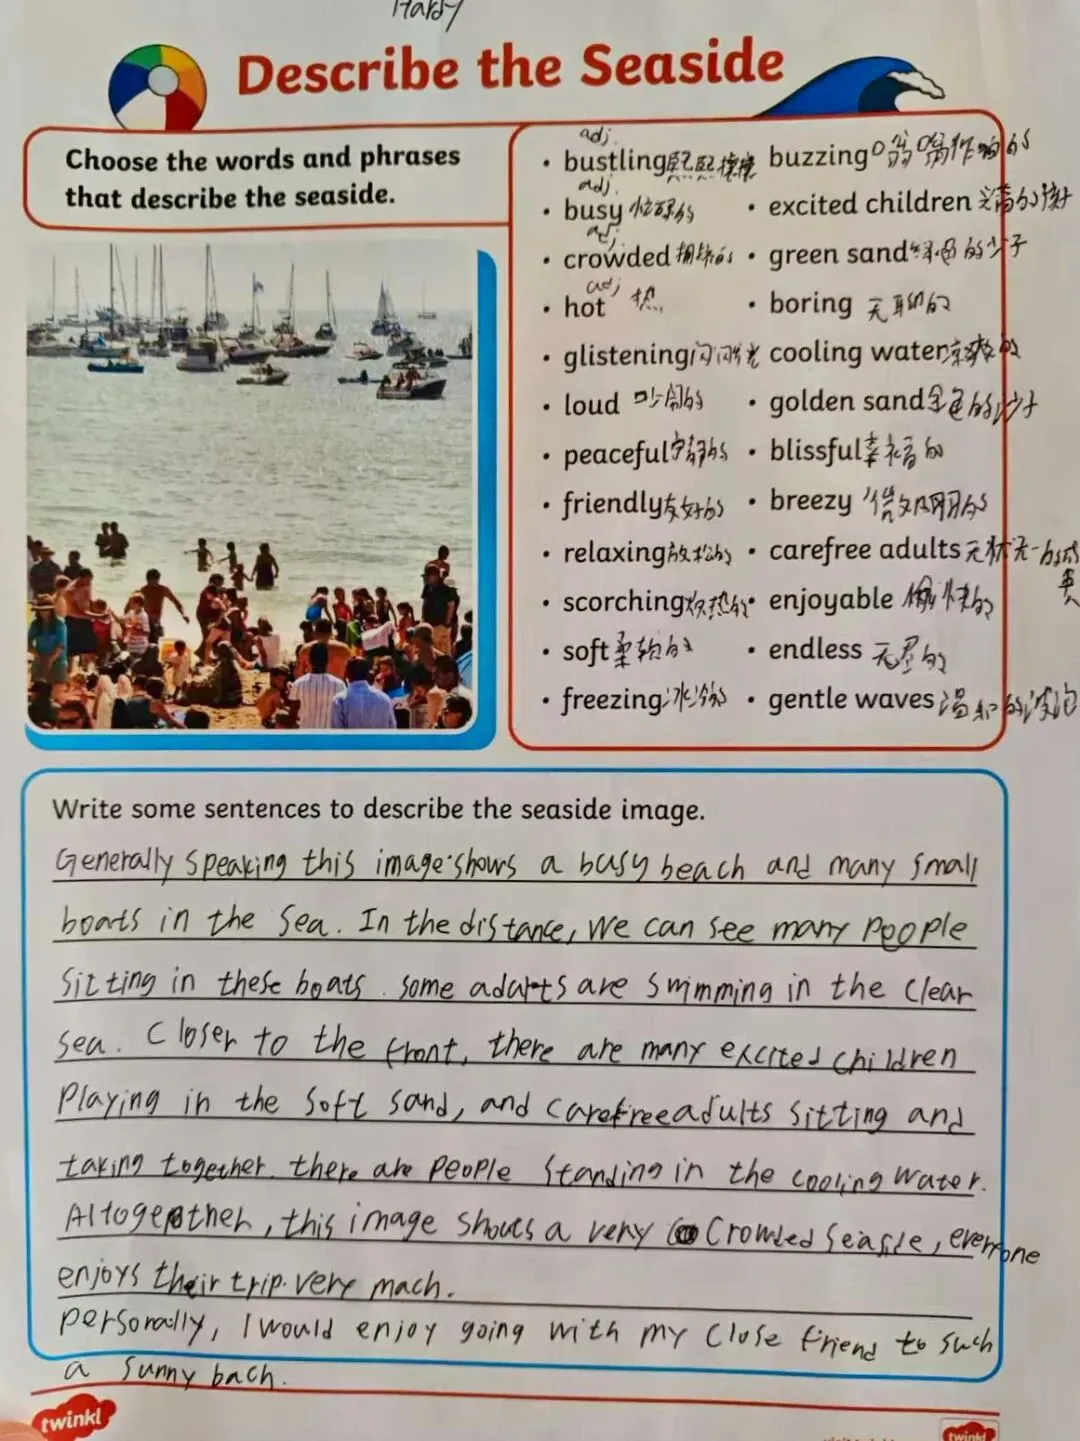 Hardy
Describe the Seaside
Choose the words and phrases
that describe the seaside.
adj.
• bustling熙熙攘攘
buzzing嗡嗡作响的
adj.
• busy 忙碌的
• excited children 兴奋的孩子
adj
• crowded 拥挤的
• green sand绿色的沙子
adj
• hot 热
• boring 无聊的
• glistening闪闪发光
cooling water凉爽的
• loud 吵闹的
• golden sand金色的沙子
• peaceful宁静的
• blissful幸福的
• friendly友好的
• breezy 微风的
• relaxing放松的
• carefree adults
• scorching炎热的
• enjoyable 愉快的
• soft柔软的
• endless 无尽的
• freezing冰冷的
• gentle waves温和的波浪
Write some sentences to describe the seaside image.
Generally speaking this image shows a busy beach and many small
boats in the sea. In the distance, we can see many people
sitting in these boats. some adults are swimming in the clear
sea. Closer to the front, there are many excited children
playing in the soft sand, and carefree adults sitting and
taking together. there are people standing in the cooling water.
Altogether, this image shouts a very crowded seaside, everyone
enjoys their trip very mach.
personally, I would enjoy going with my close friend to such
a sunny bach.
twinkl
twinkl